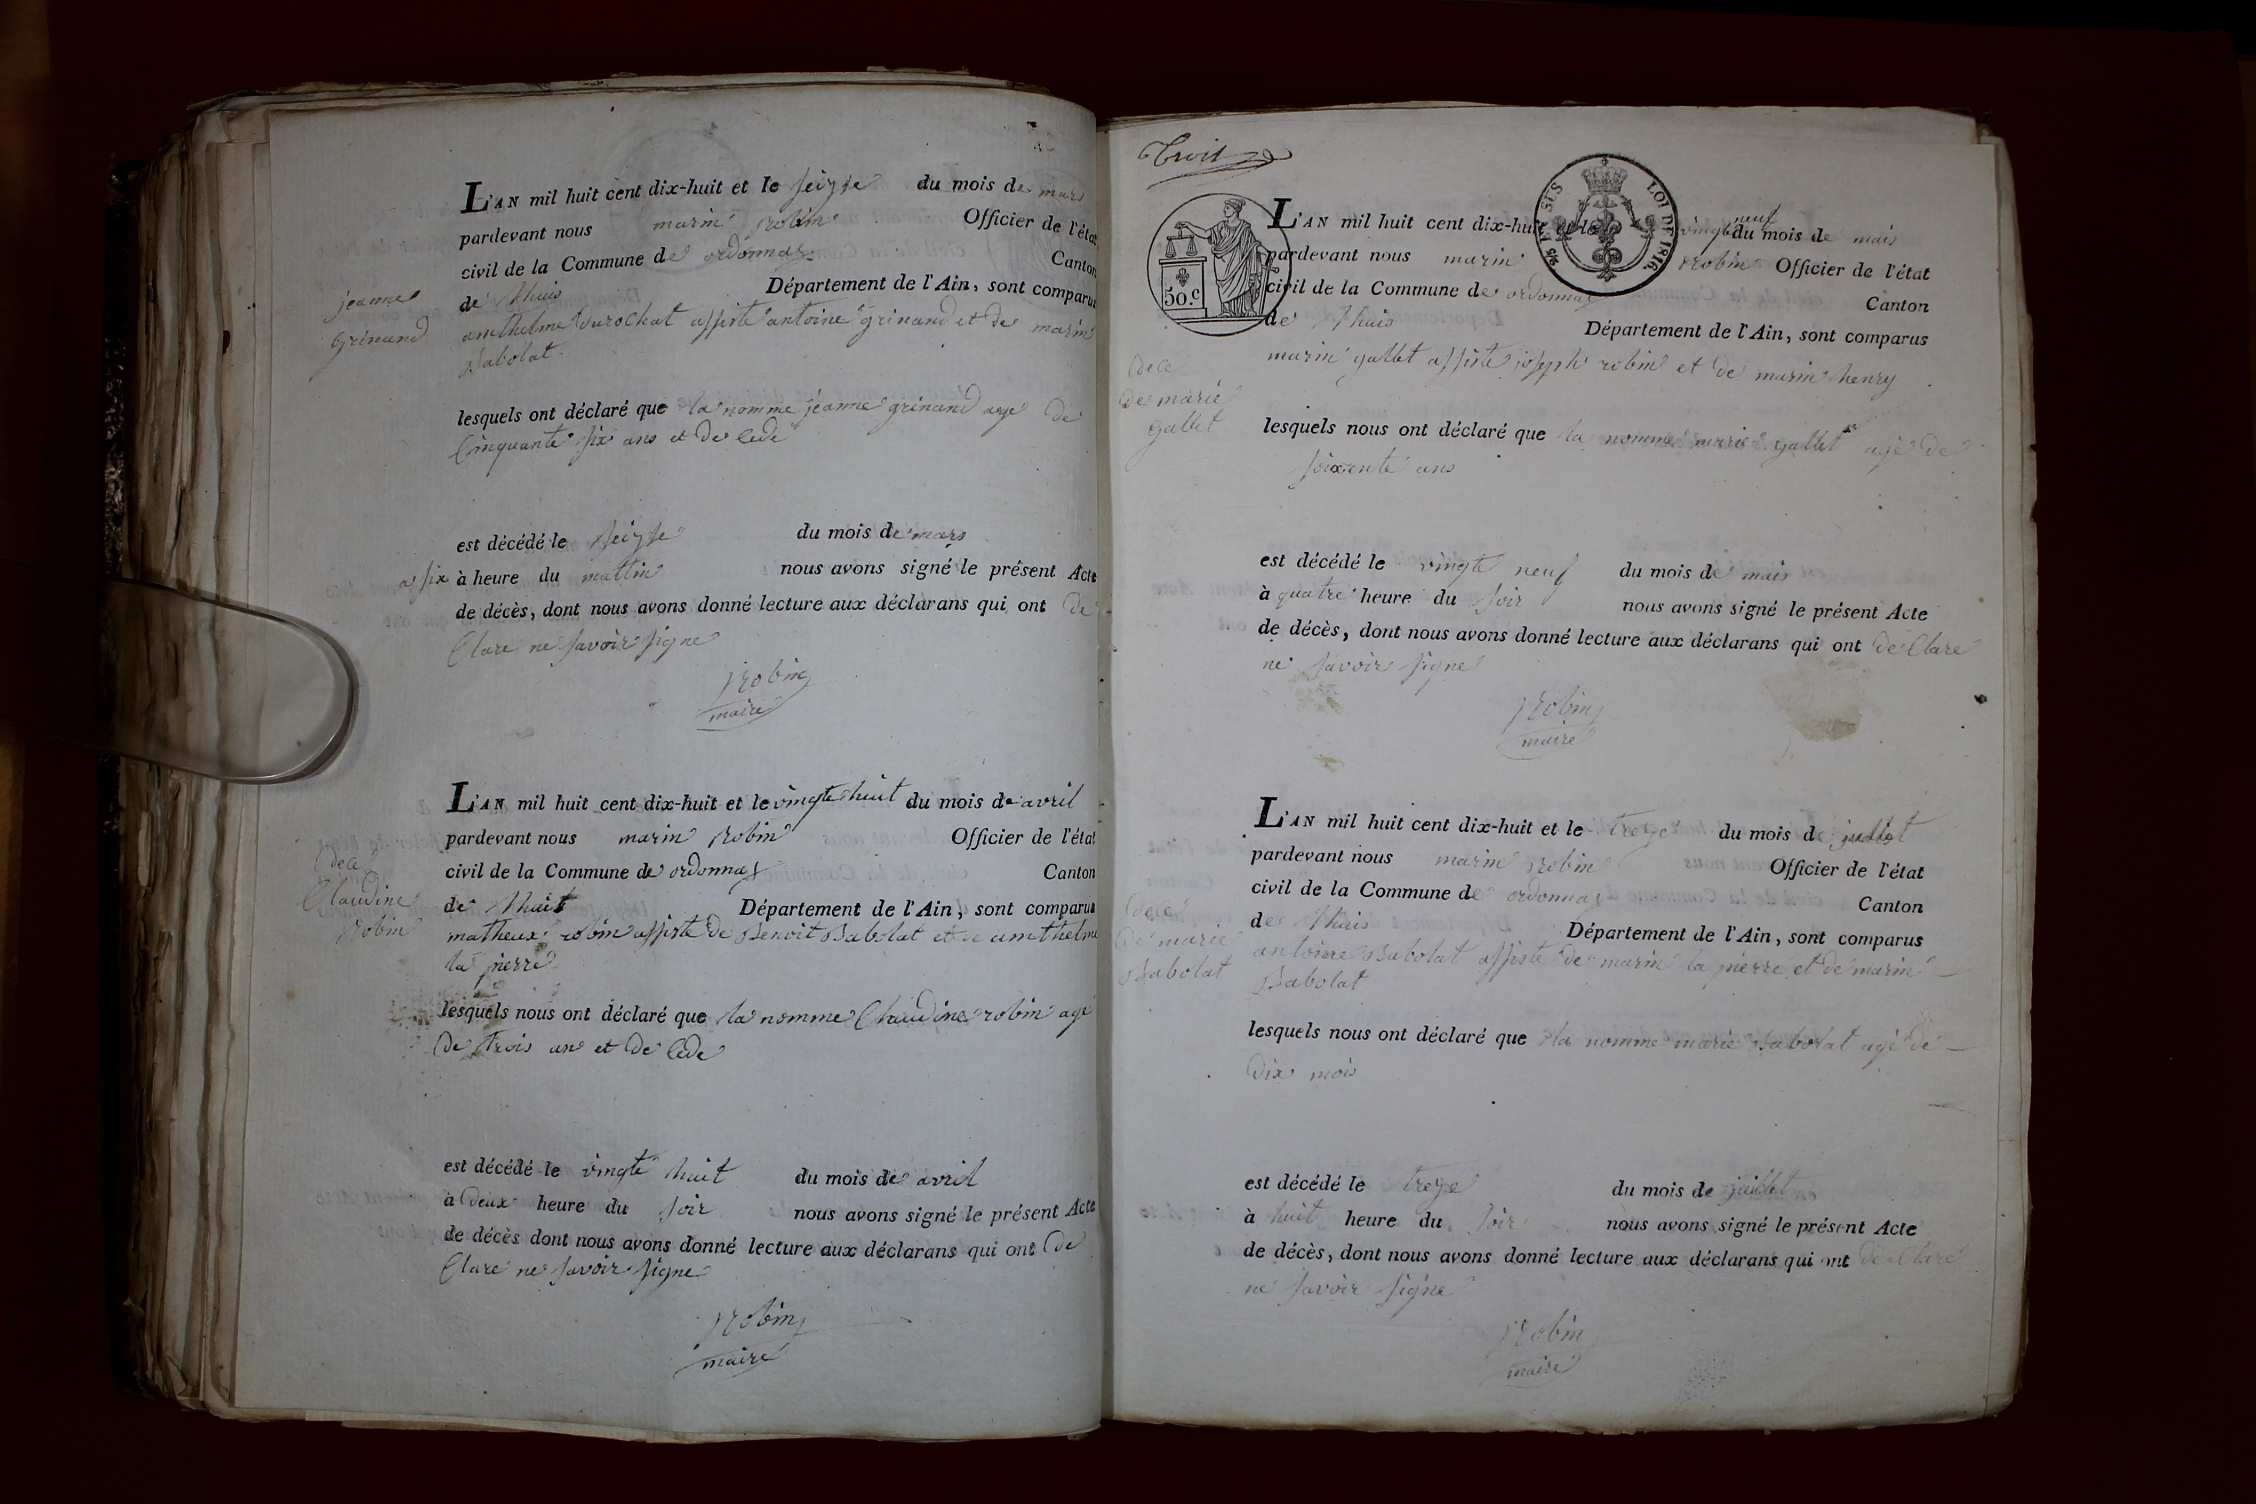 L'AN mil huit cent dix-huit et le seizse du mois de mars
pardevant nous marin robin Officier de l'état
civil de la Commune de ordonnaz Canton
de lhuis Département de l'Ain, sont comparus
jeanne
grinand
amthelme durochat assiste antoine grinand et de marin
Babolat
lesquels ont déclaré que la nomme jeanne grinand age de
Cinquante six ans et de cede
est décédé le seizse du mois de mars
a six à heure du mattin nous avons signé le présent Acte
de décès, dont nous avons donné lecture aux déclarans qui ont de
Clare ne savoir signe
robin
maire
L'AN mil huit cent dix-huit et le vingte huit du mois de avril
pardevant nous marin robin Officier de l'état
civil de la Commune de ordonnaz Canton
de lhuis Département de l'Ain, sont comparus
dece
Claudine
robin
matheux robin assiste de Benoit Babolat et de amthelme
la pierre
lesquels nous ont déclaré que la nomme Claudine robin age
de trois ans et de cede
est décédé le vingte huit du mois de avril
à deux heure du soir nous avons signé le présent Acte
de décès dont nous avons donné lecture aux déclarans qui ont de
Clare ne savoir signe
robin
maire
trois
50.c
LOI DE 1816.
L'AN mil huit cent dix-huit et le vingt neuf du mois de mais
pardevant nous marin robin Officier de l'état
civil de la Commune de ordonnaz Canton
de lhuis Département de l'Ain, sont comparus
dece
de marie
gallet
marin gallet assiste joseph robin et de marin henry
lesquels nous ont déclaré que la nomme marie gallet age de
soixente ans
est décédé le vingte neuf du mois de mais
à quatre heure du soir nous avons signé le présent Acte
de décès, dont nous avons donné lecture aux déclarans qui ont de Clare
ne savoir signe
robin
maire
L'AN mil huit cent dix-huit et le treze du mois de juillet
pardevant nous marin robin Officier de l'état
civil de la Commune de ordonnaz Canton
de lhuis Département de l'Ain, sont comparus
dece
de marie
Babolat
antoine Babolat assiste de marin la pierre et de marin
Babolat
lesquels nous ont déclaré que la nomme marie Babolat age de
dix mois
est décédé le treze du mois de juillet
à huit heure du soir nous avons signé le présent Acte
de décès, dont nous avons donné lecture aux déclarans qui ont de Clare
ne savoir signe
robin
maire